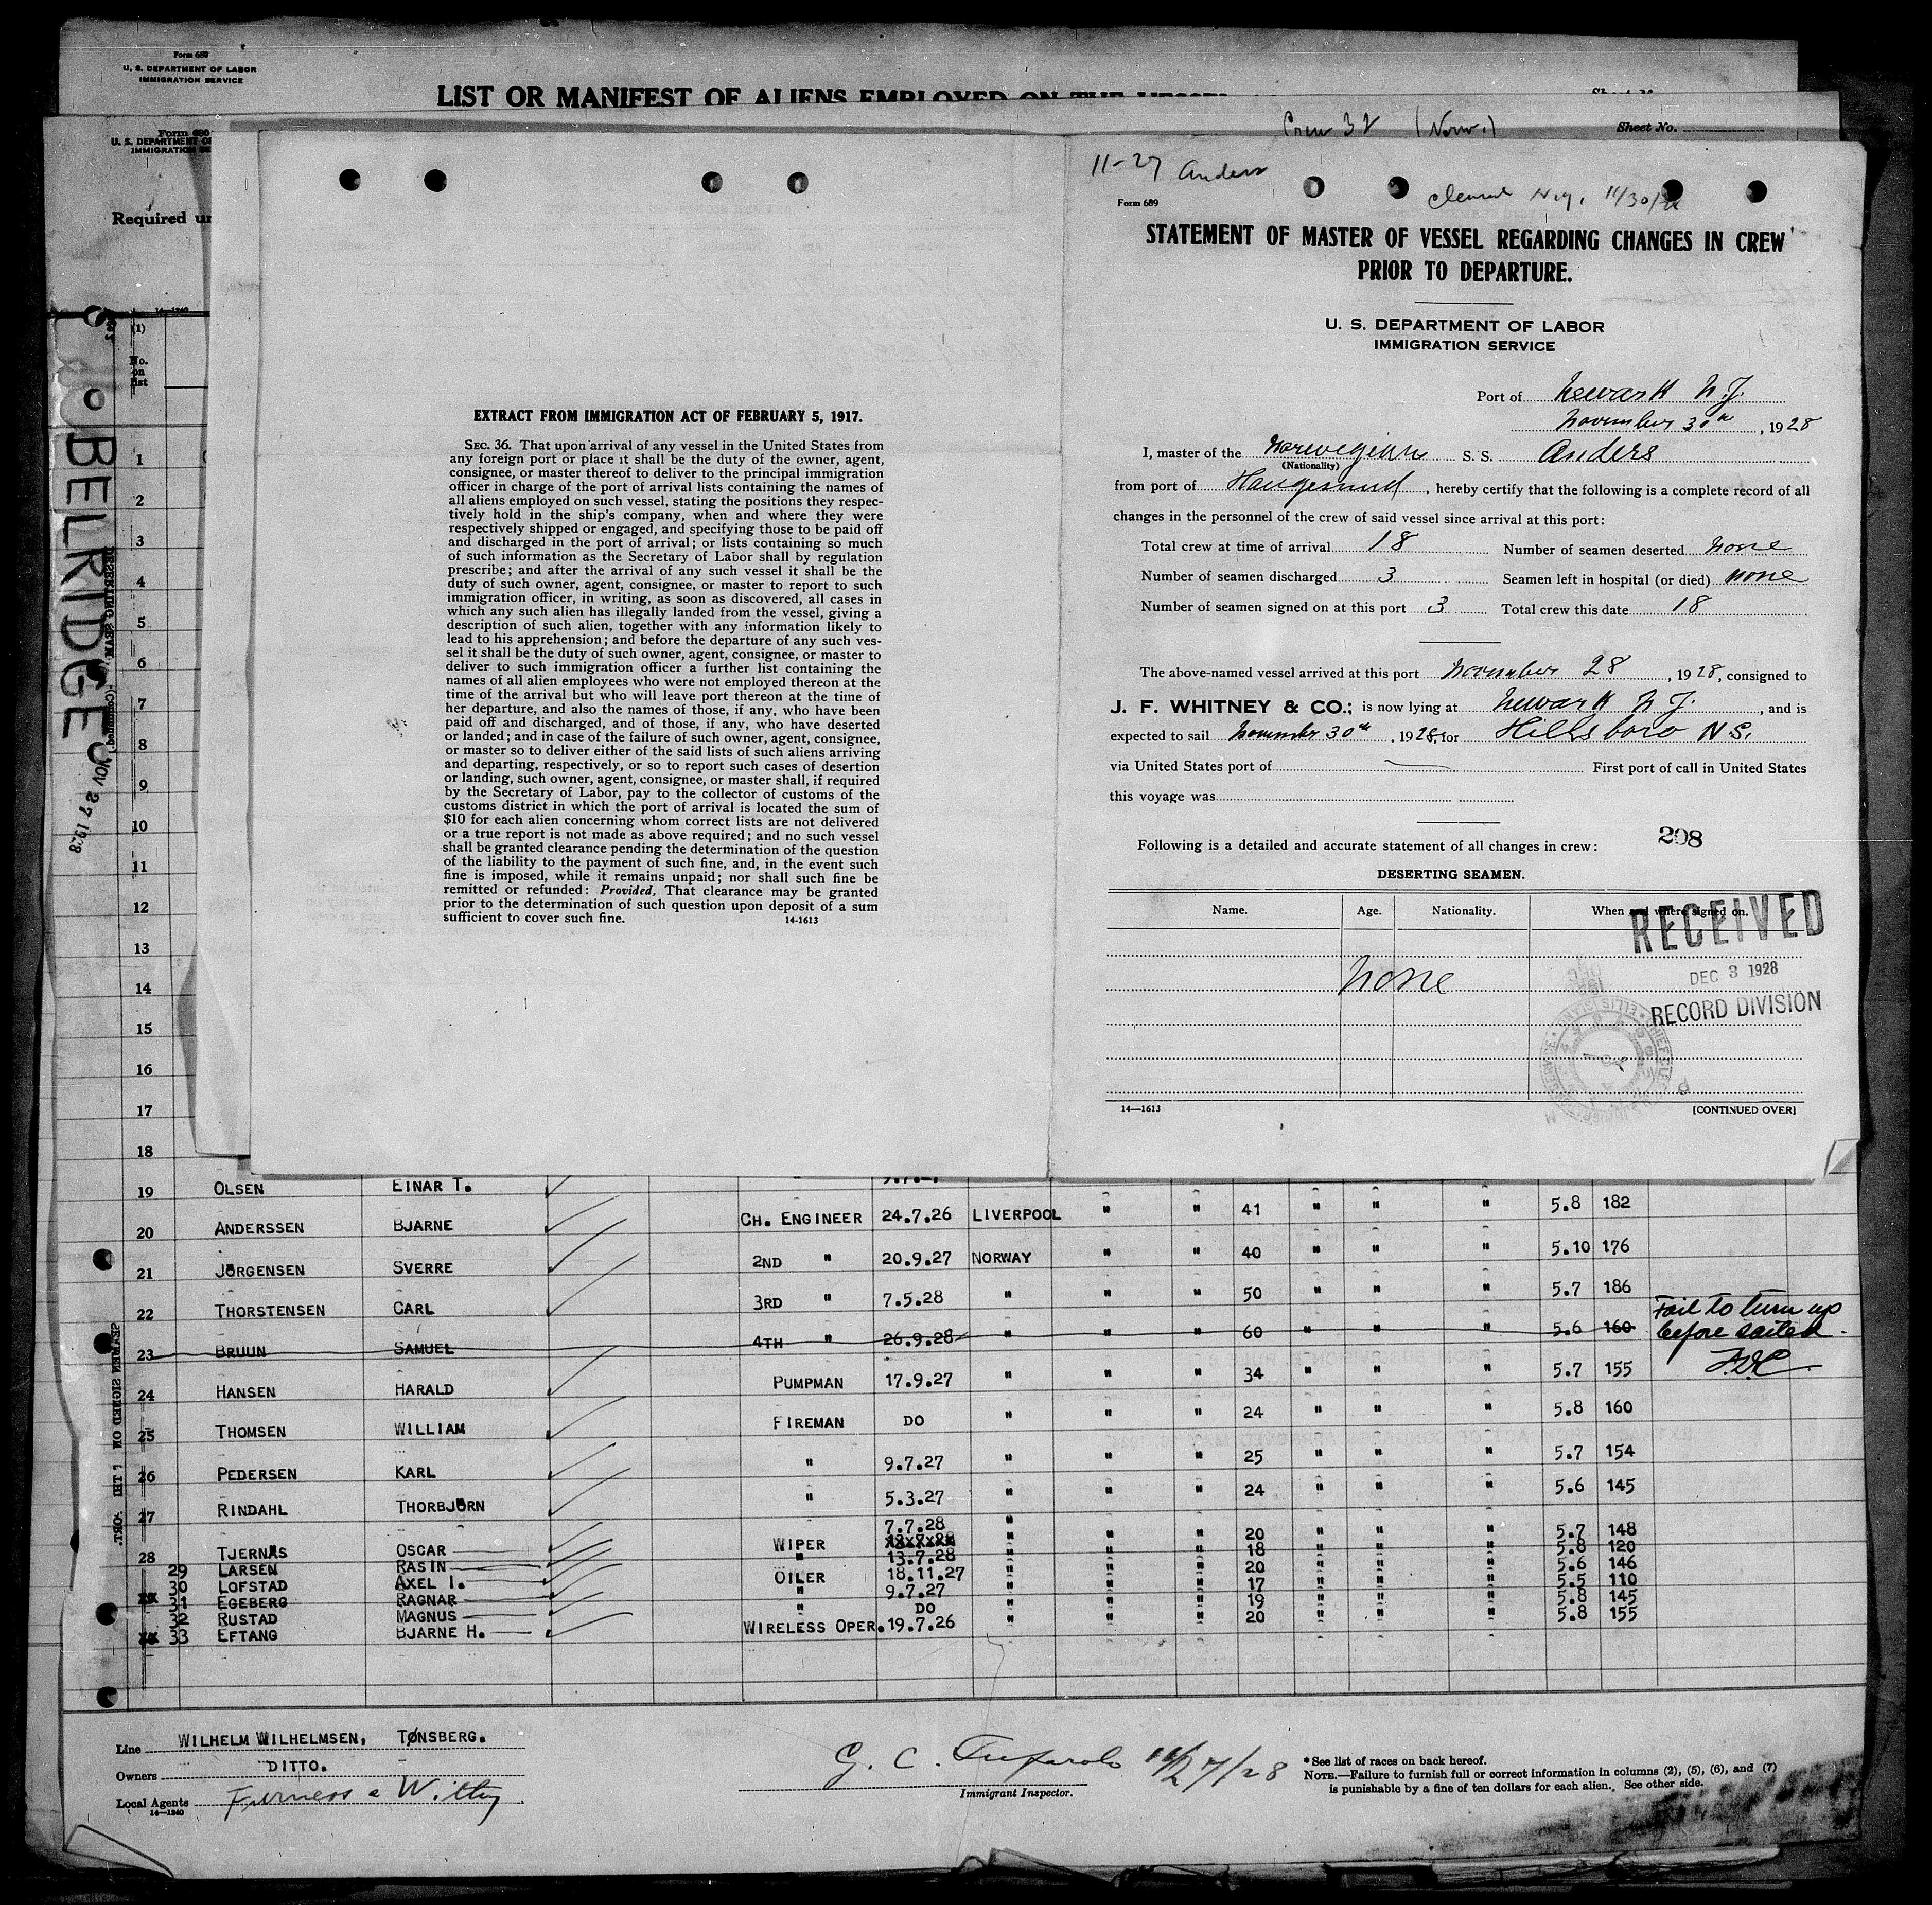 Form 680
U. S. DEPARTMENT OF LABOR
IMMIGRATION SERVICE
LIST OR MANIFEST OF ALIENS EMPLOYED ON THE VESSEL
Form 680
U. S. DEPARTMENT OF
IMMIGRATION SE
Crew 32 (Norw.)
Sheet No.
Required un
14—1240
(1)
No. on list
BELRIDGE
NOV 27 1928
EXTRACT FROM IMMIGRATION ACT OF FEBRUARY 5, 1917.
SEC. 36. That upon arrival of any vessel in the United States from
any foreign port or place it shall be the duty of the owner, agent,
consignee, or master thereof to deliver to the principal immigration
officer in charge of the port of arrival lists containing the names of
all aliens employed on such vessel, stating the positions they respec-
tively hold in the ship's company, when and where they were
respectively shipped or engaged, and specifying those to be paid off
and discharged in the port of arrival; or lists containing so much
of such information as the Secretary of Labor shall by regulation
prescribe; and after the arrival of any such vessel it shall be the
duty of such owner, agent, consignee, or master to report to such
immigration officer, in writing, as soon as discovered, all cases in
which any such alien has illegally landed from the vessel, giving a
description of such alien, together with any information likely to
lead to his apprehension; and before the departure of any such ves-
sel it shall be the duty of such owner, agent, consignee, or master to
deliver to such immigration officer a further list containing the
names of all alien employees who were not employed thereon at the
time of the arrival but who will leave port thereon at the time of
her departure, and also the names of those, if any, who have been
paid off and discharged, and of those, if any, who have deserted
or landed; and in case of the failure of such owner, agent, consignee,
or master so to deliver either of the said lists of such aliens arriving
and departing, respectively, or so to report such cases of desertion
or landing, such owner, agent, consignee, or master shall, if required
by the Secretary of Labor, pay to the collector of customs of the
customs district in which the port of arrival is located the sum of
$10 for each alien concerning whom correct lists are not delivered
or a true report is not made as above required; and no such vessel
shall be granted clearance pending the determination of the question
of the liability to the payment of such fine, and, in the event such
fine is imposed, while it remains unpaid; nor shall such fine be
remitted or refunded: Provided, That clearance may be granted
prior to the determination of such question upon deposit of a sum
sufficient to cover such fine. 14-1613
11-27 Anders
Form 689
Cleared N.Y. 11/30/28
STATEMENT OF MASTER OF VESSEL REGARDING CHANGES IN CREW
PRIOR TO DEPARTURE.
U. S. DEPARTMENT OF LABOR
IMMIGRATION SERVICE
Port of Newark N.J.
November 30th, 1928
I, master of the Norwegian S. S. Anders
(Nationality)
from port of Haugesund, hereby certify that the following is a complete record of all
changes in the personnel of the crew of said vessel since arrival at this port:
Total crew at time of arrival 18 Number of seamen deserted none
Number of seamen discharged 3 Seamen left in hospital (or died) none
Number of seamen signed on at this port 3 Total crew this date 18
The above-named vessel arrived at this port November 28, 1928, consigned to
J. F. WHITNEY & CO.; is now lying at Newark N J., and is
expected to sail November 30th, 1928, for Hillsboro N.S.
via United States port of — First port of call in United States
this voyage was
Following is a detailed and accurate statement of all changes in crew: 298
DESERTING SEAMEN.
Name. Age. Nationality. When and where signed on.
RECEIVED
none
DEC 3 1928
RECORD DIVISION
14—1613 [CONTINUED OVER]
1
2
3
4
5
6
7
8
9
10
11
12
13
14
15
16
17
18
19 OLSEN EINAR T.
20 ANDERSSEN BJARNE CH. ENGINEER 24.7.26 LIVERPOOL " " 41 " " " 5.8 182
21 JÖRGENSEN SVERRE 2ND " 20.9.27 NORWAY " " 40 " " " 5.10 176
22 THORSTENSEN CARL 3RD " 7.5.28 " " " 50 " " " 5.7 186
23 BRUUN SAMUEL 4TH " 26.9.28 " " " 60 " " " 5.6 160 Fail to turn up
before sailed.
24 HANSEN HARALD PUMPMAN 17.9.27 " " " 34 " " " 5.7 155
25 THOMSEN WILLIAM FIREMAN DO " " " 24 " " " 5.8 160
26 PEDERSEN KARL " 9.7.27 " " " 25 " " " 5.7 154
27 RINDAHL THORBJÖRN " 5.3.27 " " " 24 " " " 5.6 145
28 TJERNÄS OSCAR WIPER 7.7.28 " " " 20 " " " 5.7 148
29 LARSEN RASIN " 13.7.28 " " " 18 " " " 5.8 120
30 LOFSTAD AXEL I. OILER 18.11.27 " " " 20 " " " 5.6 146
31 EGEBERG RAGNAR " 9.7.27 " " " 17 " " " 5.5 110
32 RUSTAD MAGNUS " DO " " " 19 " " " 5.8 145
33 EFTANG BJARNE H. WIRELESS OPER. 19.7.26 " " " 20 " " " 5.8 155
Line WILHELM WILHELMSEN, TØNSBERG.
Owners DITTO.
Local Agents Furness & Withy
14—1240
G. C. 11/27/28
Immigrant Inspector.
* See list of races on back hereof.
NOTE.—Failure to furnish full or correct information in columns (2), (5), (6), and (7)
is punishable by a fine of ten dollars for each alien. See other side.